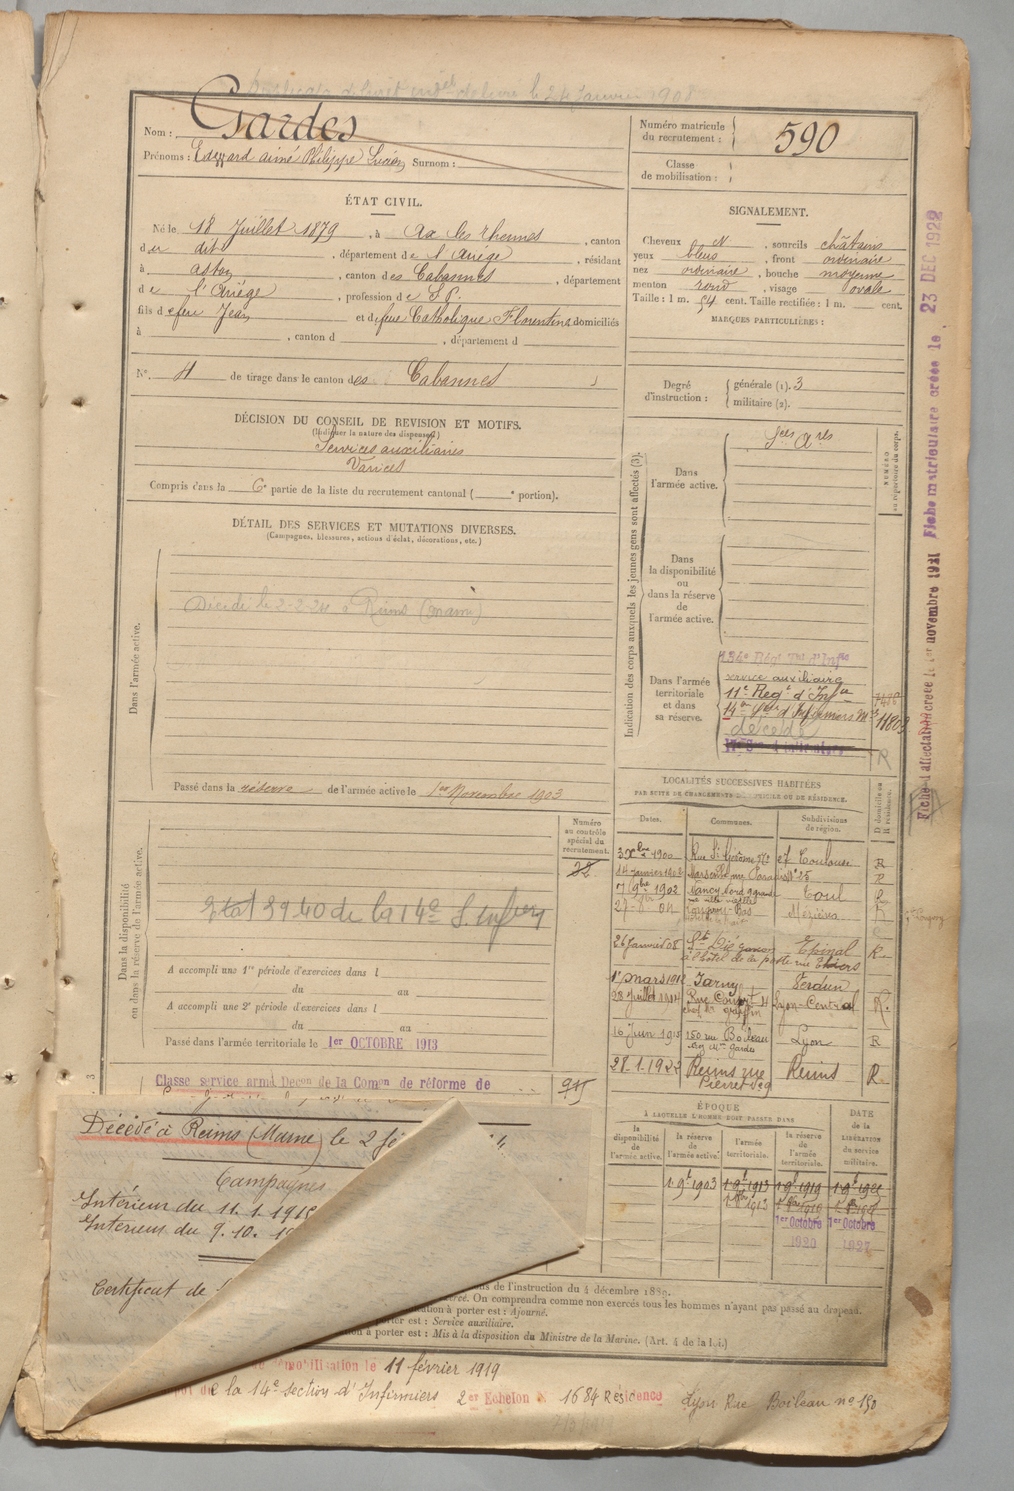 le 24 Janvier 1908
Nom : Gardes
Prénoms : Edgard aimé Philippe Lucien Surnom :
Numéro matricule
du recrutement : 590
Classe
de mobilisation :
ÉTAT CIVIL.
Né le 18 Juillet 1879, à Ax les thermes, canton
du dit, département de l'Ariège, résidant
à aston, canton des Cabannes, département
de l'Ariège, profession de S.P.
fils de feu Jean et de feue Catholique Florentine domiciliés
à , canton d , département d
N° 4 de tirage dans le canton des Cabannes
SIGNALEMENT.
Cheveux N, sourcils châtains
yeux bleus, front ordinaire
nez ordinaire, bouche moyenne
menton rond, visage ovale
Taille : 1 m. 54 cent. Taille rectifiée : 1 m. cent.
MARQUES PARTICULIÈRES :
Degré
d'instruction :
générale (1). 3
militaire (2).
DÉCISION DU CONSEIL DE REVISION ET MOTIFS.
(Indiquer la nature des dispenses)
Services auxiliaires
Varices
Compris dans la 6e partie de la liste du recrutement cantonal ( e portion).
DÉTAIL DES SERVICES ET MUTATIONS DIVERSES.
(Campagnes, blessures, actions d'éclat, décorations, etc.)
Dans l'armée active.
Décédé le 2-2-24 à Reims (Marne)
Passé dans la réserve de l'armée active le 1er Novembre 1903
Indication des corps auxquels les jeunes gens sont affectés (3).
NUMÉRO
au répertoire du corps.
Dans
l'armée active.
Dans
la disponibilité
ou
dans la réserve
de
l'armée active.
Dans l'armée
territoriale
et dans
sa réserve.
134e Régt Tal d'Infie
service auxiliaire
11e Regt d'Infie
14e Son d'Infirmiers Mres 11803
décédé
R
Fiche d'affectation créée le 1er novembre 1921 Fiche matriculaire créée le 23 DEC 1922
Dans la disponibilité
ou dans la réserve de l'armée active.
Numéro
au contrôle
spécial du
recrutement.
22
39.40 de la 14e S. Infers
A accompli une 1re période d'exercices dans l
du au
A accompli une 2e période d'exercices dans l
du au
Passé dans l'armée territoriale le 1er OCTOBRE 1913
Classe service armé Decon de la Comon de réforme de
915
LOCALITÉS SUCCESSIVES HABITÉES
PAR SUITE DE CHANGEMENTS DE DOMICILE OU DE RÉSIDENCE.
Dates. Communes. Subdivisions
de région.
D domicile ou
R résidence.
3 Xbre 1900 Rue St Jérôme Toulouse R
14 Janvier 1902 Marseille N° 25 R
7 9bre 1902 Nancy Toul
Mézières R
26 Janvier 08 St Dié Epinal R.
à l'hôtel de la poste rue Thiers
1er mars 1912 Jarny Verdun
28 Juillet 1914 Lyon-Central R.
16 Juin 1915 150 rue Boileau Lyon R
chez Mme Gardes
28.1.1922 Reims rue Reims R.
ÉPOQUE
À LAQUELLE L'HOMME DOIT PASSER DANS
DATE
de la
LIBÉRATION
du service
militaire.
la
disponibilité
de
l'armée active.
la réserve
de
l'armée active.
l'armée
territoriale.
la réserve
de
l'armée
territoriale.
1 9b 1903 1 9b 1913 1 9b 1919
1er Octobre 1er Octobre
1920 1927
Décédé à Reims (Marne) le 2
Campagnes
Intérieur du 11.1.1915
Intérieur du 9.10.
Certificat de
de l'instruction du 4 décembre 1889.
On comprendra comme non exercés tous les hommes n'ayant pas passé au drapeau.
à porter est : Ajourné.
porter est : Service auxiliaire.
à porter est : Mis à la disposition du Ministre de la Marine. (Art. 4 de la loi.)
démobilisation le 11 février 1919
de la 14e section d'Infirmiers 2er Echelon N° 1684 Résidence Lyon Rue Boileau n° 150